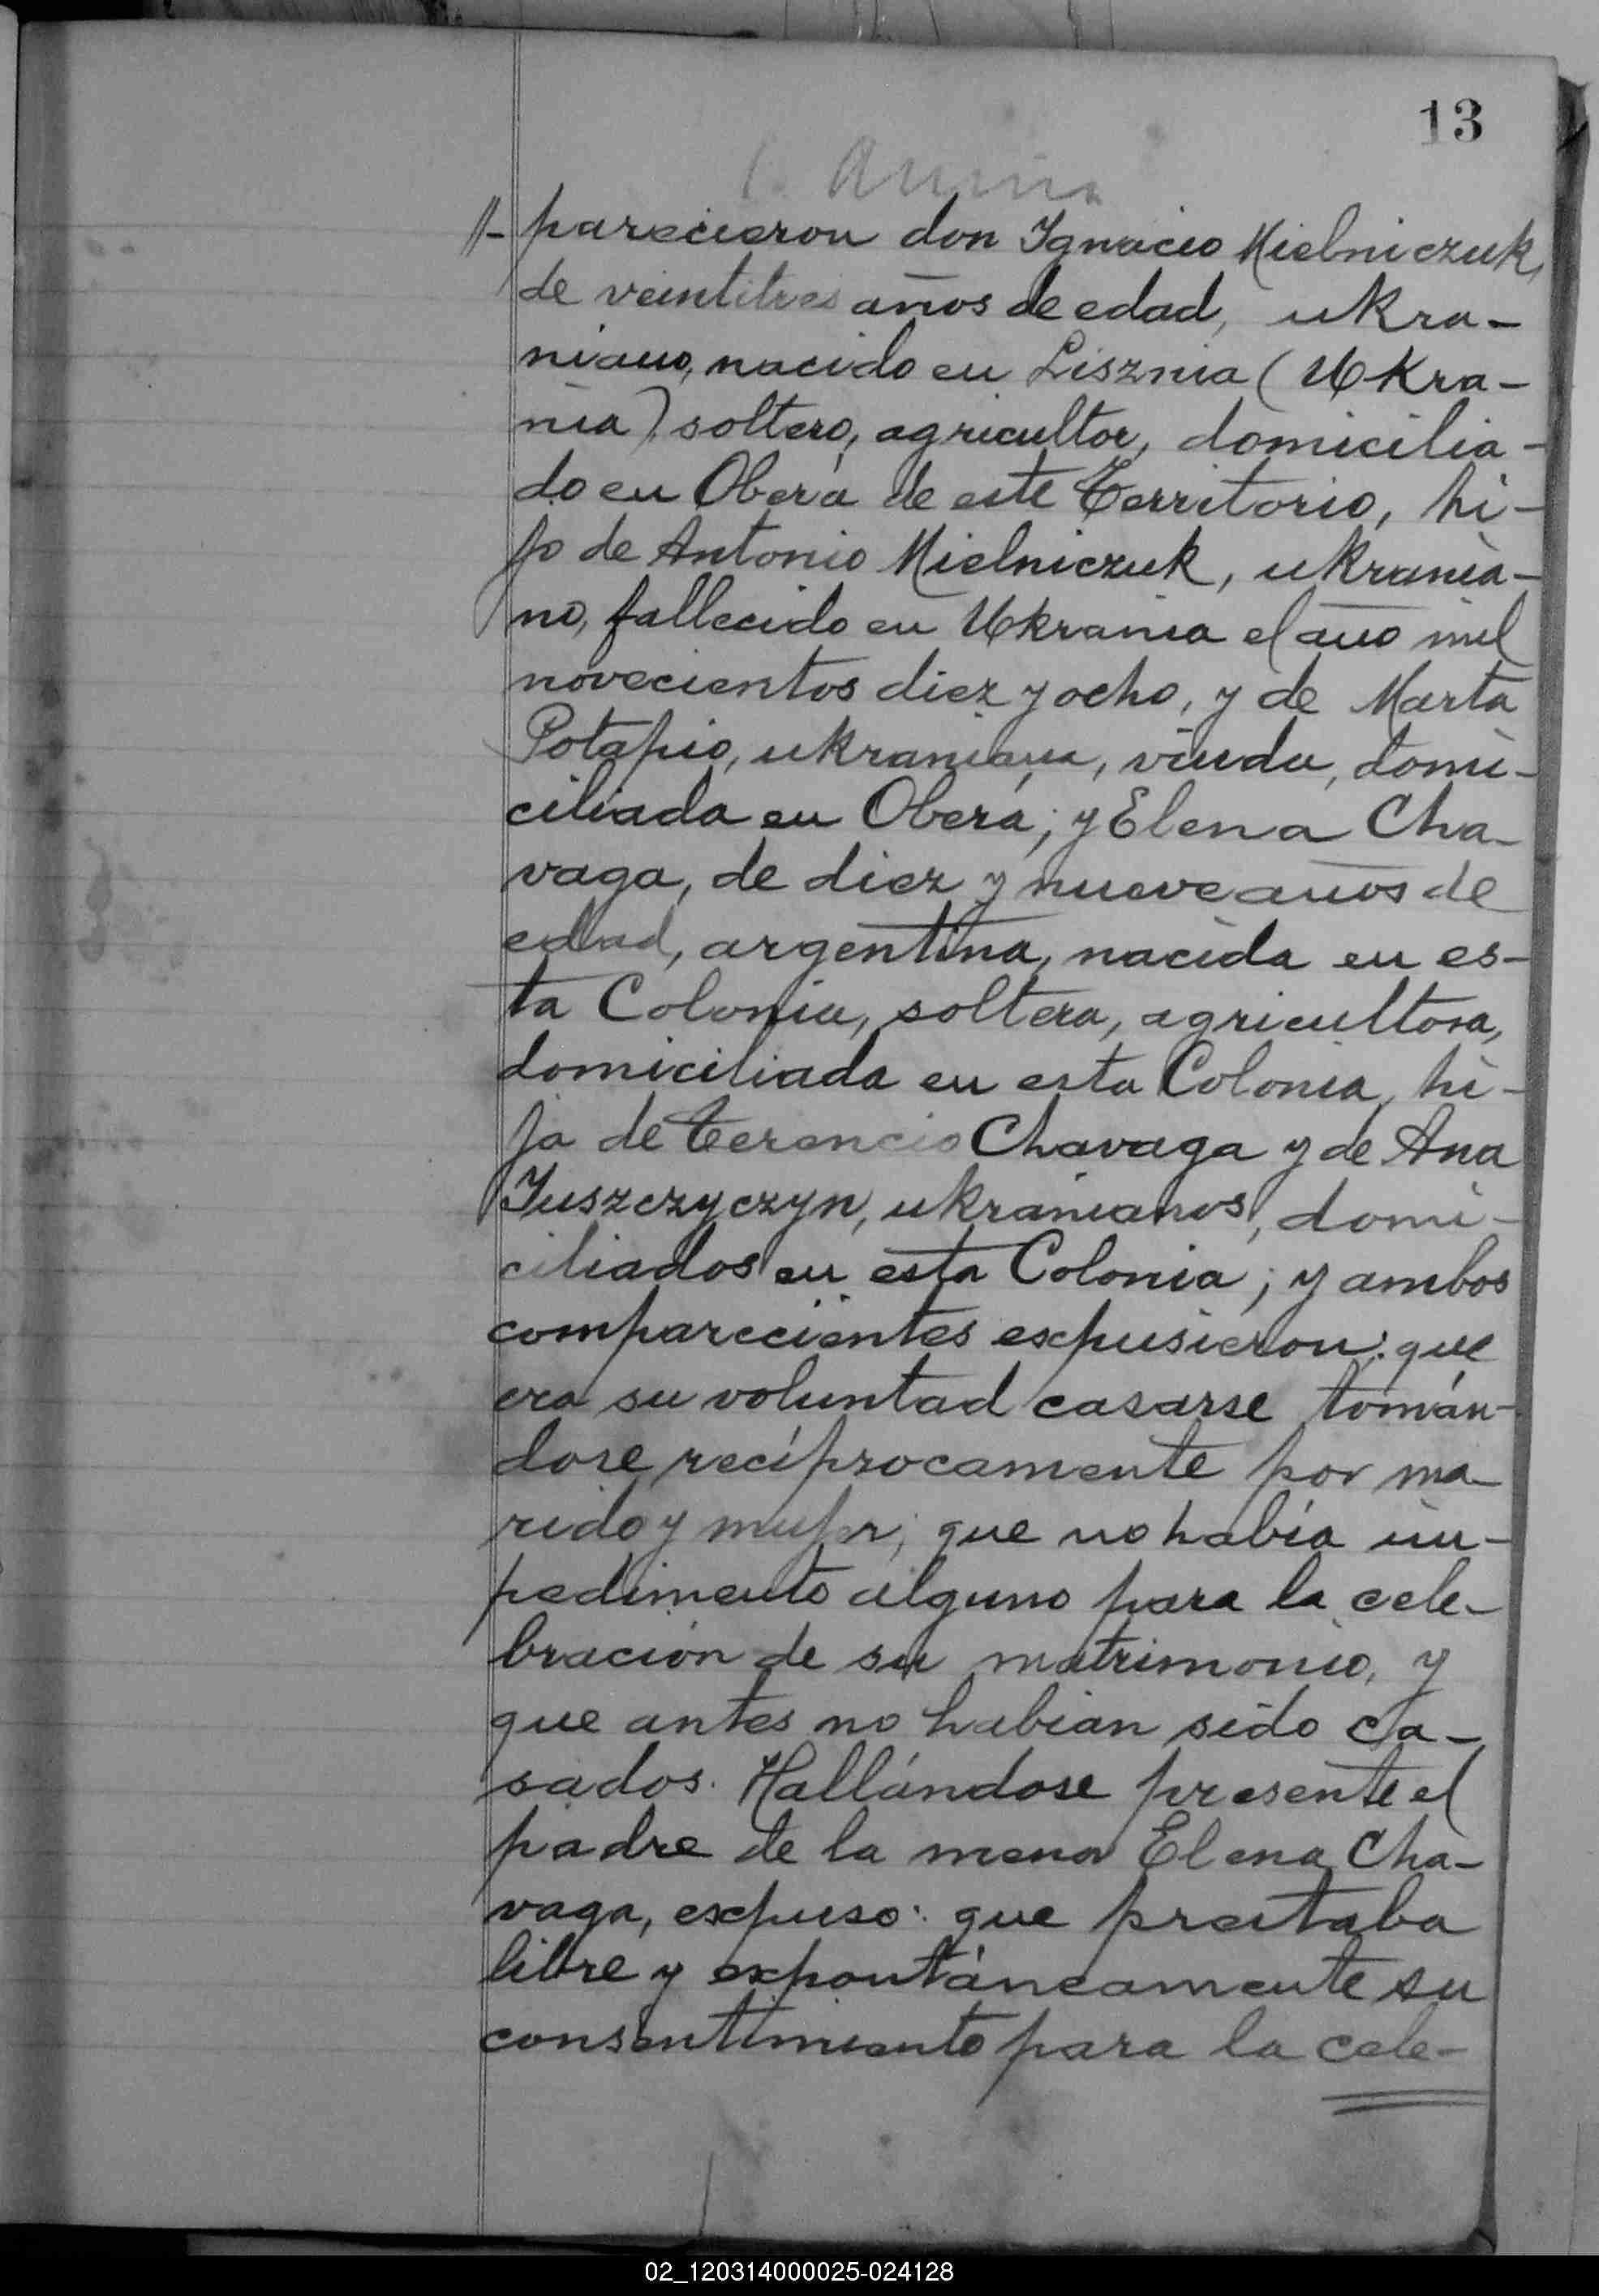 13
//- parecieron don Ignacio Mielniczuk,
de veintitres años de edad, ukra-
niano, nacido en Lisznia (Ukra-
nia), soltero, agricultor, domicilia-
do en Oberá de este Territorio, hi-
jo de Antonio Mielniczuk, ukrania-
no, fallecido en Ukrania el año mil
novecientos diez y ocho, y de Marta
Potapio, ukraniana, viuda, domi-
ciliada en Oberá; y Elena Cha-
vaga, de diez y nueve años de
edad, argentina, nacida en es-
ta Colonia, soltera, agricultora,
domiciliada en esta Colonia, hi-
ja de Terencio Chavaga y de Ana
Juszczyczyn, ukranianos, domi-
ciliados en esta Colonia; y ambos
comparecientes expusieron: que
era su voluntad casarse tomán-
dose recíprocamente por ma-
rido y mujer; que no había im-
pedimento alguno para la cele-
bración de su matrimonio, y
que antes no habian sido ca-
sados. Hallándose presente el
padre de la menor Elena Cha-
vaga, expuso: que prestaba
libre y expontáneamente su
consentimiento para la cele-
02_120314000025-024128